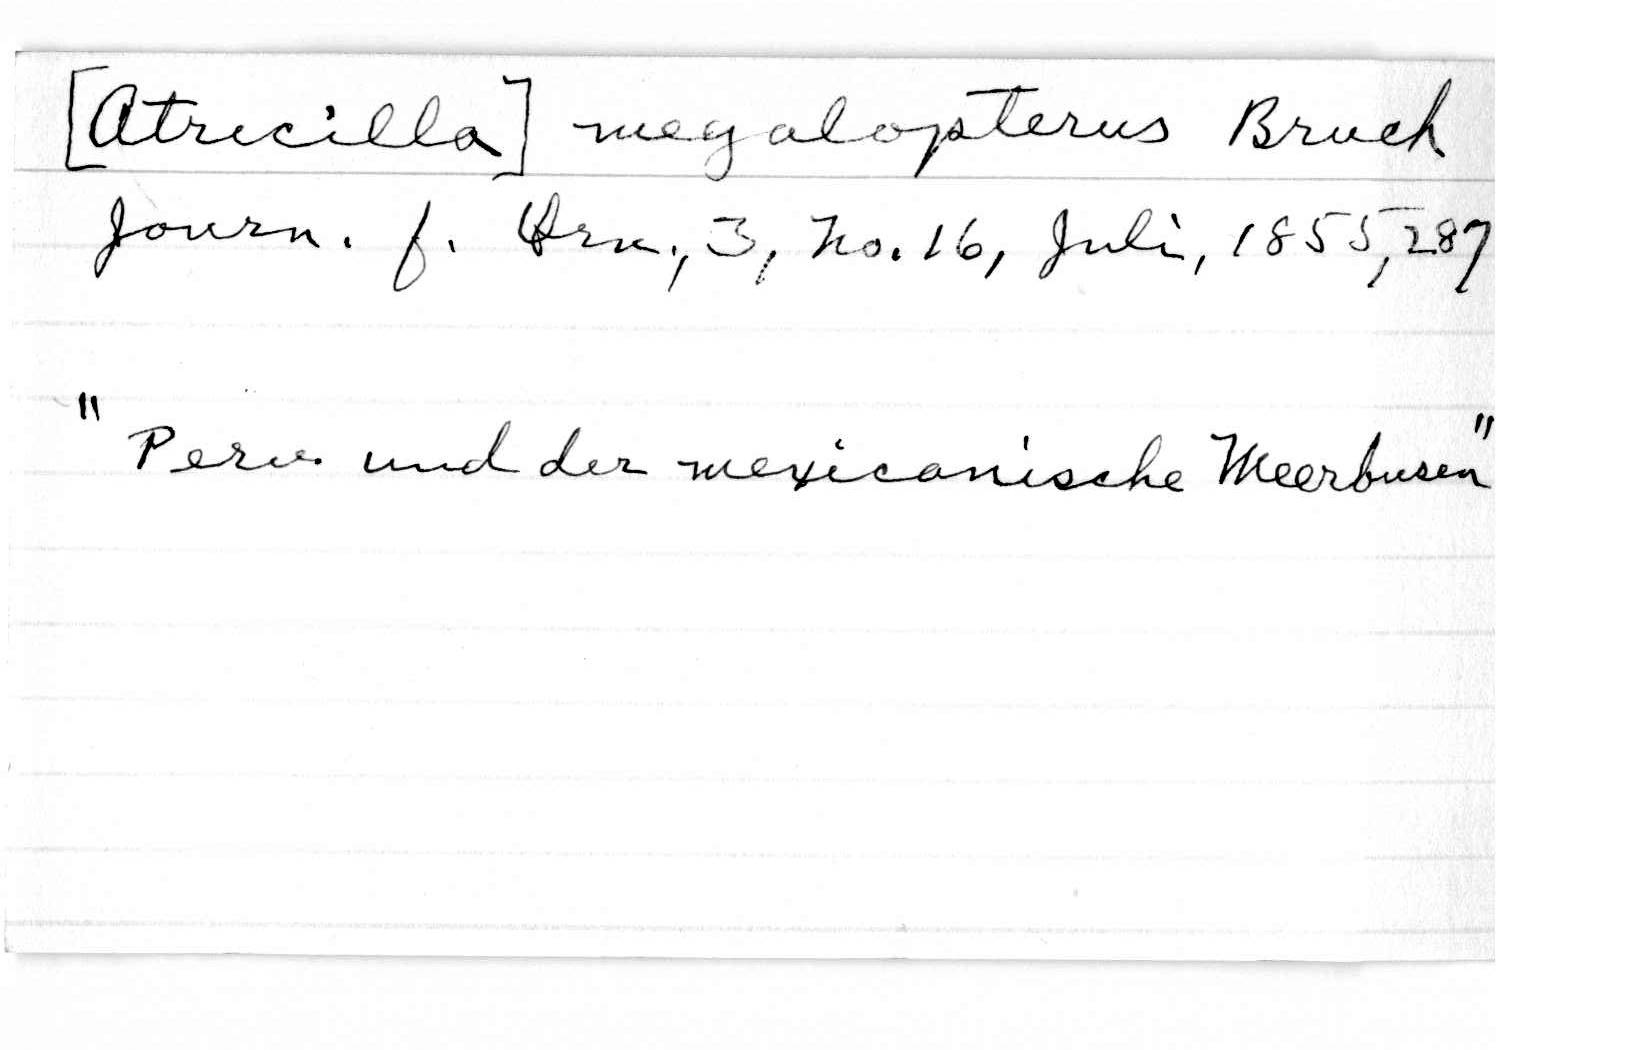 [Atricilla] megalopterus Bruch
Journ. f. Orn., 3, no. 16, Juli, 1855, 287
"Peru und der mexicanische Meerbusen"